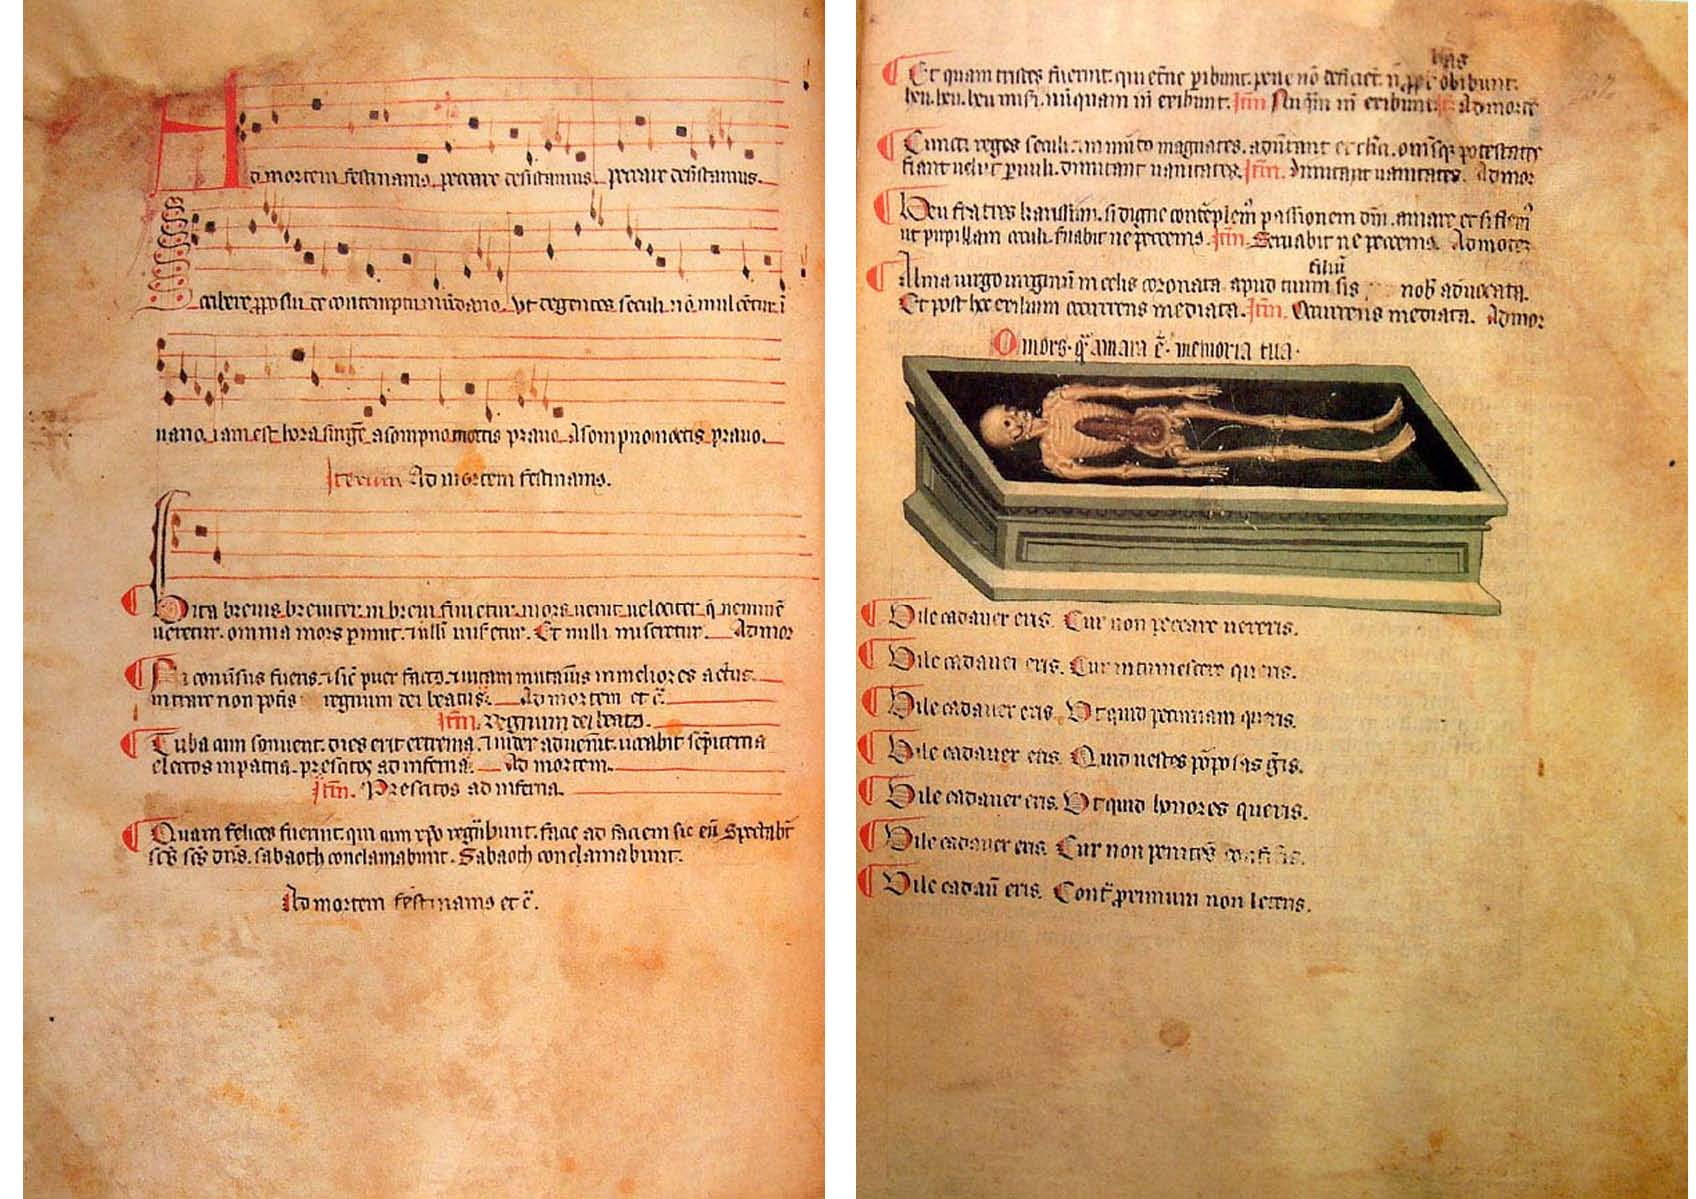 Ad mortem festinamus peccare desistamus peccare desistamus.
Scribere pposui de contemptu mūdano Ut degentes seculi nō mulcētur ī
uano iam est hora surgē a sompno mortis prauo A sompno mortis prauo.
Iterum Ad mortem festinamus.
Vita breuis breuiter in breui finietur mors uenit uelociter q̄ neminē
ueretur. omnia mors perimit ⁊ nulli miseretur. Et nulli miseretur. Ad mor
Ni conūsus fueris ⁊ sic̄ puer factꝰ ⁊ uitam mutaūis in meliores actus
intrare non potis regnum dei beatus. Ad mortem et c̄.
Itm̄. regnum dei beatꝰ.
Tuba cum sonuerit dies erit extrema ⁊ iudex aduen̄it uocabit sēpiterna
electos in patria prescitos ad inferna. Ad mortem.
Itm̄. Prescitos ad inferna.
Quam felices fuerint qui cum xp̄o regn̄bunt. facie ad faciem sic eū Spectabt̄
sc̄s sc̄s dn̄s. sabaoth conclamabunt. Sabaoth conclamabunt.
Ad mortem festinamus et c̄.
bas
Et quam tristes fuerint. qui et̄ne peribunt. pene nō deficiēt. obibunt.
heu. heu. heu mis̄i. nūquam in̄ exibunt. Itm̄ Nuq̄m in̄ exibunt. Ad morte
Cuncti reges seculi ⁊ in mūdo magnates. aduertant ⁊ cleric̄. omīsq; potestates
fiant uelut paruuli. dimitant uanitates. Itm̄. dimitant uanitates. Ad mor
Heu fratres karissimi. si digne contēplem̄ passionem dn̄i. amare et si flem̄
ut pupillam occuli. s̄uabit ne peccem̄. Itm̄. Seruabit ne peccemꝰ. Ad morteȝ
filiū
Alma uirgo uirginū in celis coronata. apud tuum sis nob̄ aduocata.
Et post hoc exilium occurrens mediata. Itm̄. Occurrens mediata. Ad mor
O mors. q̄ amara ē. memoria tua.
Vile cadauer eris. Cur non peccare uereris.
Vile cadauer eris. Cur intumescere queris.
Vile cadauer eris. Ut quid peccuniam queris.
Vile cadauer eris. Quid uestes pōposas ḡis.
Vile cadauer eris. Ut quid honores queris.
Vile cadauer eris. Cur non penitēs
Vile cadaū eris. Cont̄ proximum non leteris.